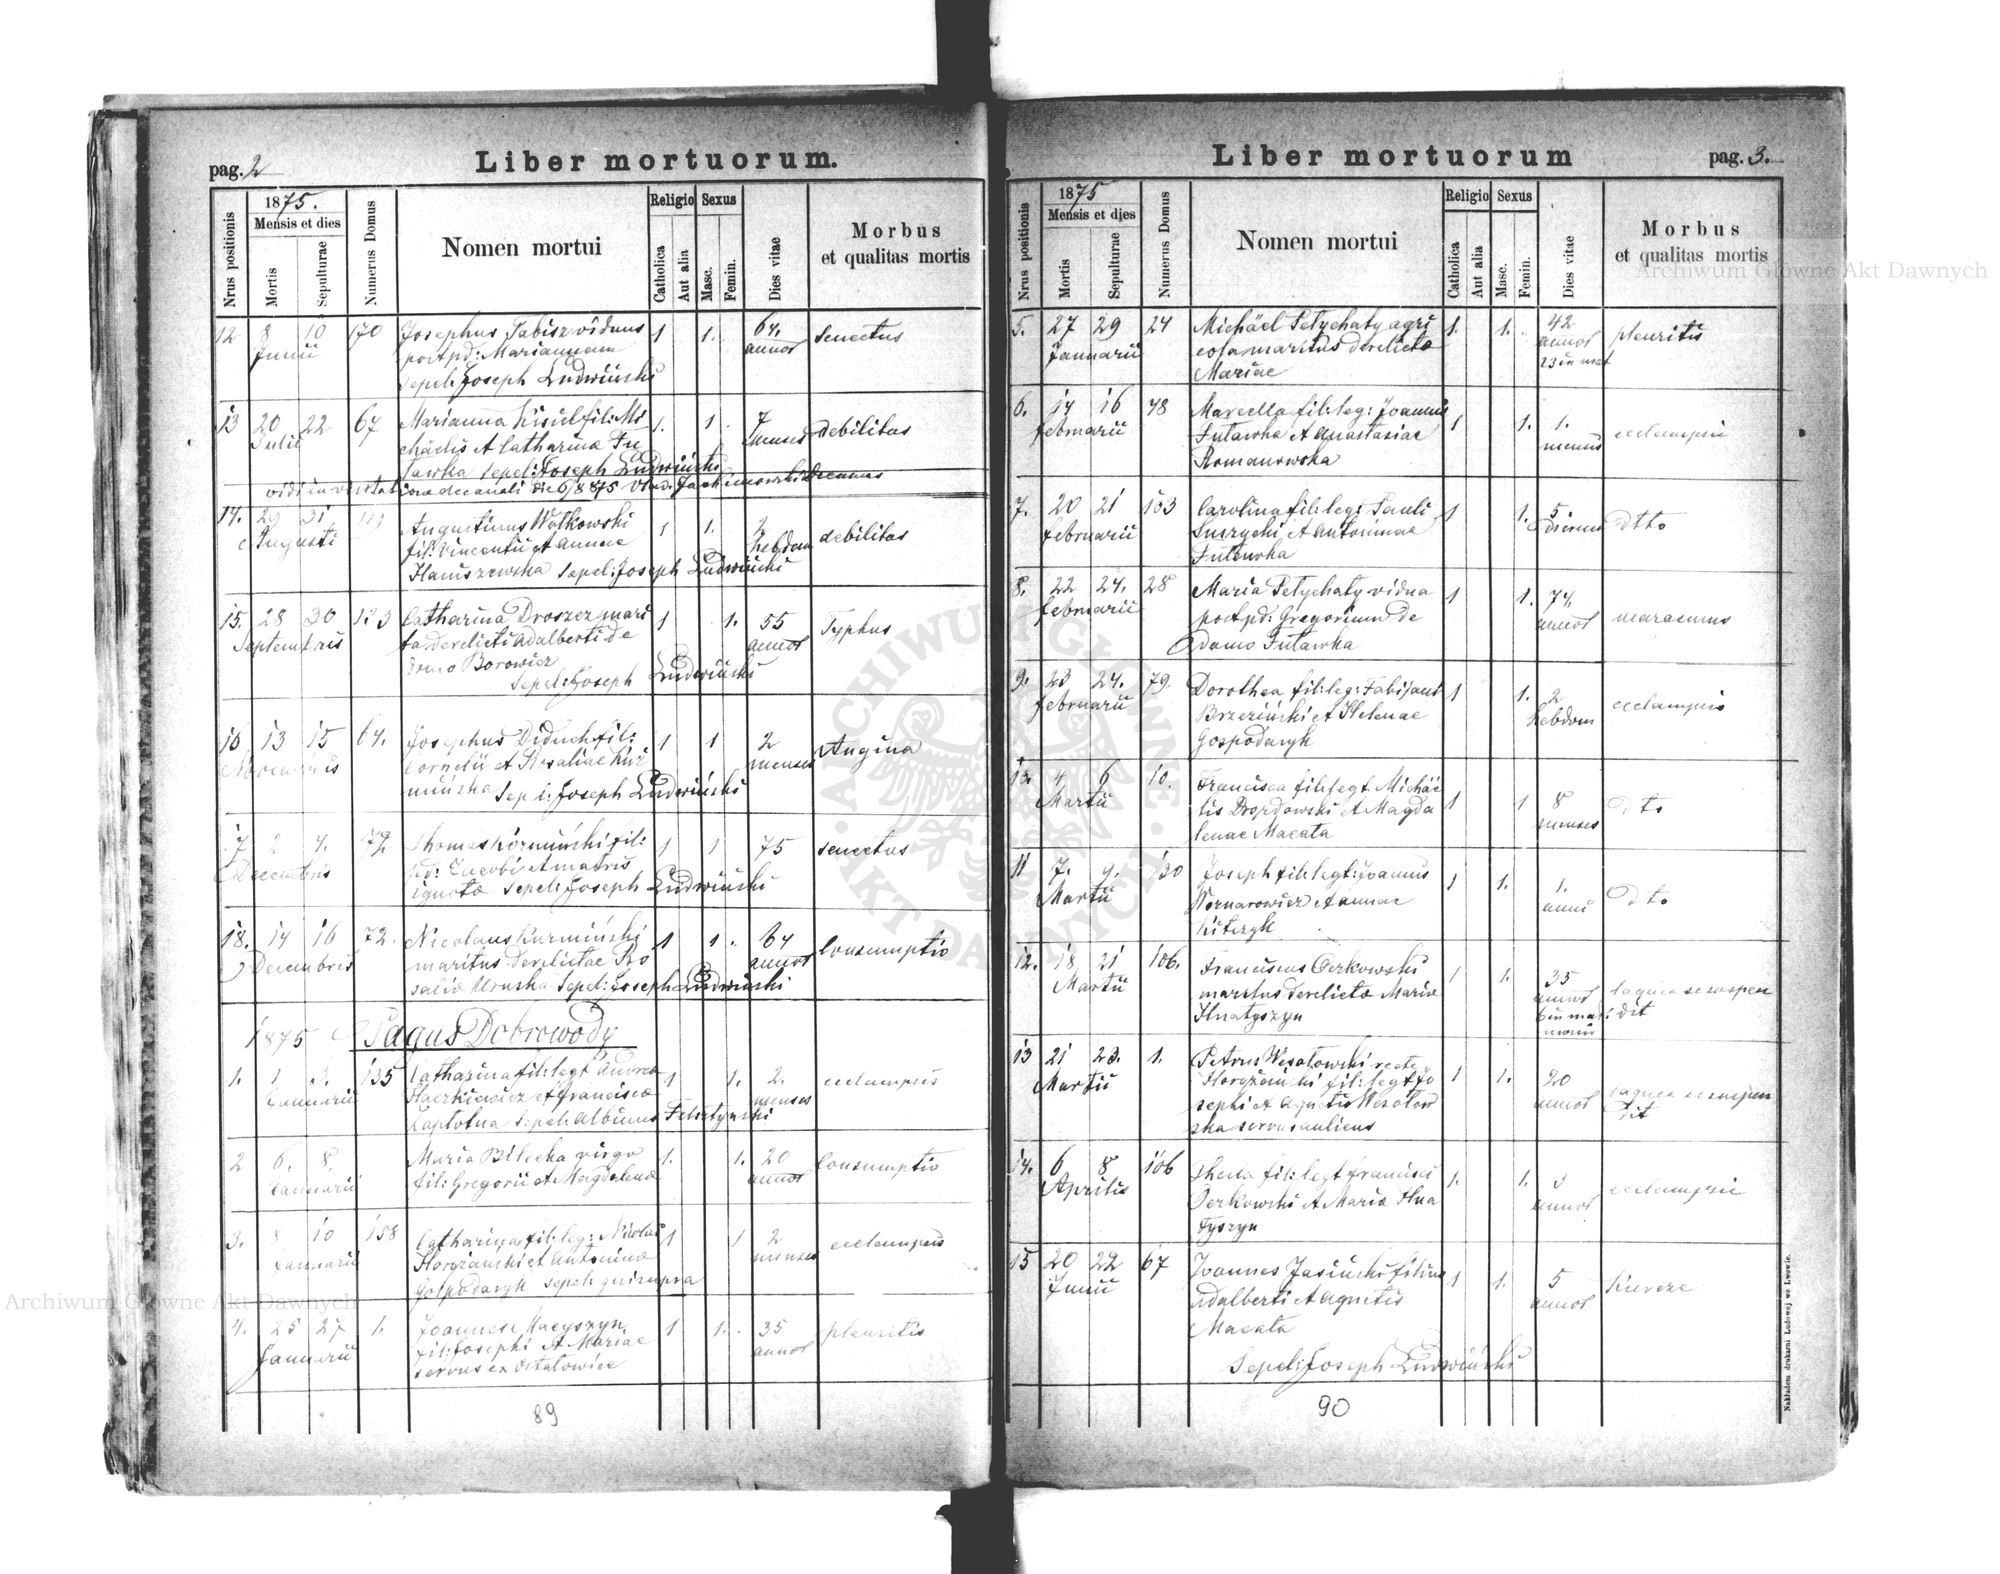 pag. 2
Liber mortuorum.
1875.
Nrus positionis
Mensis et dies
Mortis
Sepulturae
Numerus Domus
Nomen mortui
Religio
Catholica
Aut alia
Sexus
Masc.
Femin.
Dies vitae
Morbus
et qualitas mortis
12 8 10 170 Josephus Tabisz viduus 1 1. 64. senectus
Junii post pd: Mariannam annor
sepel: Joseph Ludwiński
13 20 22 67 Marianna Kisiul fil: Mi 1. 1. 7 debilitas
Julii chäelis et Catharina Fu menses
tawka sepel: Joseph Ludwiński
vidi in visitatione decanali die 6/8 875
14. 29 31 Augustinus Wołkowski 1 1. 2 debilitas
Augusti fil: Vincentii et Annae hebdom
Haniszewska Sepel: Joseph Ludwiński
15. 28 30 Catharina Droszez mari 1 1. 55 Typhus
Septembris ta derelicti Adalberti de annor
domo Borowicz
Sepel: Joseph Ludwiński
16 13 15 64. Josephus Diduch fil: 1 1 2 Angina
Novembris Cornelii et Rosaliae Kur menses
mińska Sepel: Joseph Ludwiński
17 2 4. 72 Thomas Kórmiński fil: 1 1 75 senectus
Decembris pd: Jacobi et matris
ignota Sepel: Joseph Ludwiński
18. 14 16 72. Nicolaus Kurmiński 1 1. 64 Consumptio
Decembris maritus derelictae Ro annor
salia Uruska Sepel: Joseph Ludwiński
1875 Pagus Dobrowody
1. 1 3. 135 Catharina fil: legt Andrea 1 1. 2. ecclampsis
Januarii Haczkiewicz et Francisca menses
Zaplotna Sepel: Albinus Felsztyński
2 6. 8. Maria Bilecka virgo 1. 1. 20 Consumptio
Januarii fil: Gregorii et Magdalena annor
3. 8 10 158 Catharina fil: leg: Nicolai 1 1 2 ecclampsis
Januarii Horyżański et Antonina menses
Gospodaryk Sepel: qui supra
4. 25 27 1. Joannes Macyszyn 1 1. 35 pleuritis
Januarii fil: Josephi et Mariae annor
servus ex Ostałowice
89
Liber mortuorum
pag. 3.
1875
Nrus positionis
Mensis et dies
Mortis
Sepulturae
Numerus Domus
Nomen mortui
Religio
Catholica
Aut alia
Sexus
Masc.
Femin.
Dies vitae
Morbus
et qualitas mortis
5. 27 29 24 Michäel Petychaty agri 1. 1. 42 pleuritis
Januarii cola maritus derelicta annor
Mariae 23 in mat
6. 14 16 48 Marcella fil: leg: Joannis 1 1. 1. ecclampsis
februarii Futawka et Anastasiae mensis
Romanowska
7. 20 21 103 Carolina fil: leg: Pauli 1 1. 5 dtto
februarii Luszycki et Antoninae dierum
Futawka
8. 22 24. 28 Maria Petychaty vidua 1 1. 74. marasmus
februarii post pd: Gregorium de annor
domo Futawka
9. 23 24. 79. Dorothea fil: leg: Fabijani 1 1. 2 ecclampsis
februarii Brzeziński et Helenae hebdom
Gospodaryk
10. 4 6 10. Francisca fil: legt Michäe 1 1 8 dto
Martii lis Drozdowski et Magda menses
lenae Macata
11 7. 9. 130 Joseph fil: legt: Joannis 1 1. 1. dto
Martii Woznarowicz et Annae anni
Kiłczyk
12. 18 21 106. Franciscus Cerkowski 1 1. 35 laqueo se suspen
Martii maritus derelicta Maria annor dit
Hnatyszyn 6 in mat
13 21 23. 1. Petrus Wesołowski recte 1 1. 20 laqueo se suspen
Martii Horyżański fil: legt Jo annor dit
sephi et Agnetis Wesołow
ska servus aulicus
14. 6 8 106 Thecla fil: legt Francisci 1. 1. 3 ecclampsis
Aprilis Cerkowski et Maria Hna annor
tyszyn
15 20 22 67 Joannes Jasiński filius 1 1. 5
Junii Adalberti et Agnetis annor
Macata
Sepel: Joseph Ludwiński
90
Nakładem drukarni Ludowej we Lwowie.
Archiwum Główne Akt Dawnych
Archiwum Główne Akt Dawnych
ARCHIWUM GŁÓWNE AKT DAWNYCH